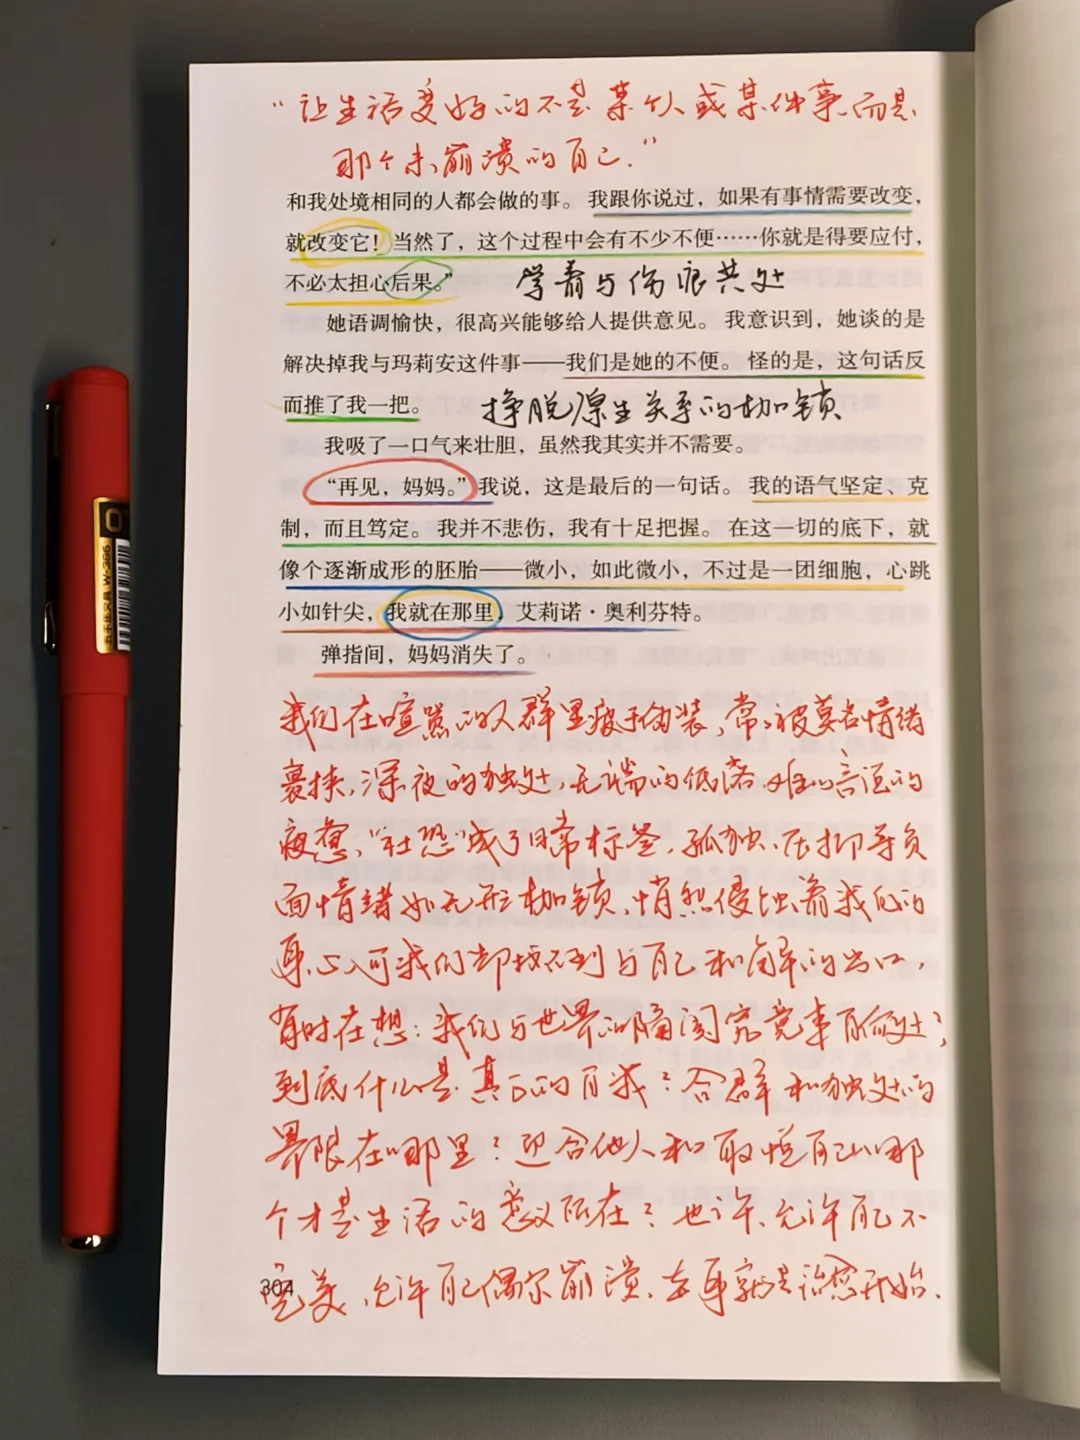 “让生活变好的不是某个人或某件事,而是
那个未崩溃的自己.”
和我处境相同的人都会做的事。我跟你说过，如果有事情需要改变，
就改变它！当然了，这个过程中会有不少不便……你就是得要应付，
不必太担心后果。”
学着与伤痕共处
她语调愉快，很高兴能够给人提供意见。我意识到，她谈的是
解决掉我与玛莉安这件事——我们是她的不便。怪的是，这句话反
而推了我一把。
挣脱原生关系的枷锁
我吸了一口气来壮胆，虽然我其实并不需要。
“再见，妈妈。”我说，这是最后的一句话。我的语气坚定、克
制，而且笃定。我并不悲伤，我有十足把握。在这一切的底下，就
像个逐渐成形的胚胎——微小，如此微小，不过是一团细胞，心跳
小如针尖，我就在那里，艾莉诺·奥利芬特。
弹指间，妈妈消失了。
我们在喧嚣的人群里疲于伪装,常常被莫名情绪
裹挟,深夜的独处,无端的低落,难以言说的
疲惫,“社恐”成了日常标签,孤独、压抑等负
面情绪如无形枷锁,悄然侵蚀着我们的
身心,可我们却找不到与自己和解的出口,
有时在想:我们与世界的隔阂究竟来自何处?
到底什么是真正的自我?合群和独处的
界限在哪里?迎合他人和取悦自己哪
个才是生活的意义所在?也许,允许自己不
完美,允许自己偶尔崩溃,本身就是治愈开始.
304
五千年文具 W-386